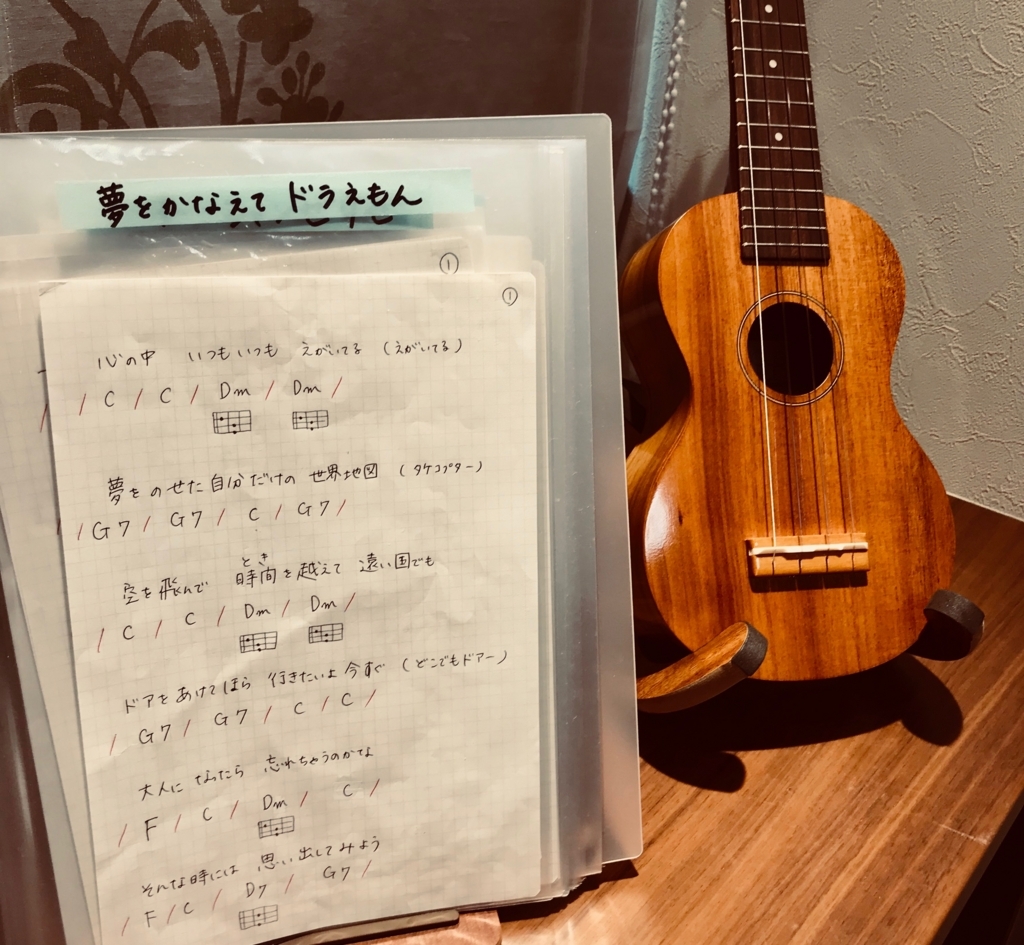 夢をかなえて ドラえもん
①
①
心の中 いつもいつも えがいてる (えがいてる)
/ C / C / Dm / Dm /
夢をのせた自分だけの 世界地図 (タケコプター)
/ G7 / G7 / C / G7 /
とき
空を飛んで 時間を越えて 遠い国でも
/ C / C / Dm / Dm /
ドアをあけてほら 行きたいよ今すぐ (どこでもドアー)
/ G7 / G7 / C / C /
大人になったら 忘れちゃうのかな
/ F / C / Dm / C /
そんな時には 思い出してみよう
/ F / C / D7 / G7 /